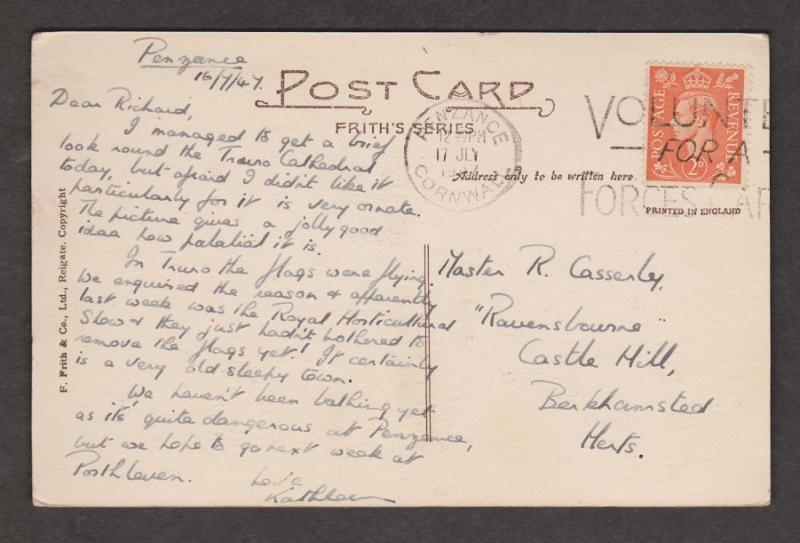 Penzance
16/7/47.
POST CARD
FRITH'S SERIES.
Dear Richard,
I managed to get a brief
look round the Truro Cathedral
today, but afraid I didn't like it
particularly for it is very ornate.
The picture gives a jolly good
idea how palatial it is.
In Truro the flags were flying.
We enquired the reason & apparently
last week was the Royal Horticultural
Show & they just hadn't bothered to
remove the flags yet! It certainly
is a very old sleepy town.
We haven't been bathing yet
as it's quite dangerous at Penzance,
but we hope to go next week at
Porthleven.
Love
Kathleen
F. Frith & Co., Ltd., Reigate. Copyright
PENZANCE
PM
17 JLY
CORNWALL
VOLUNTE
FOR A
FORCES
POSTAGE
REVENUE
2D
Address only to be written here
PRINTED IN ENGLAND
Master R. Casserly.
"Ravensbourne"
Castle Hill,
Berkhamsted
Herts.